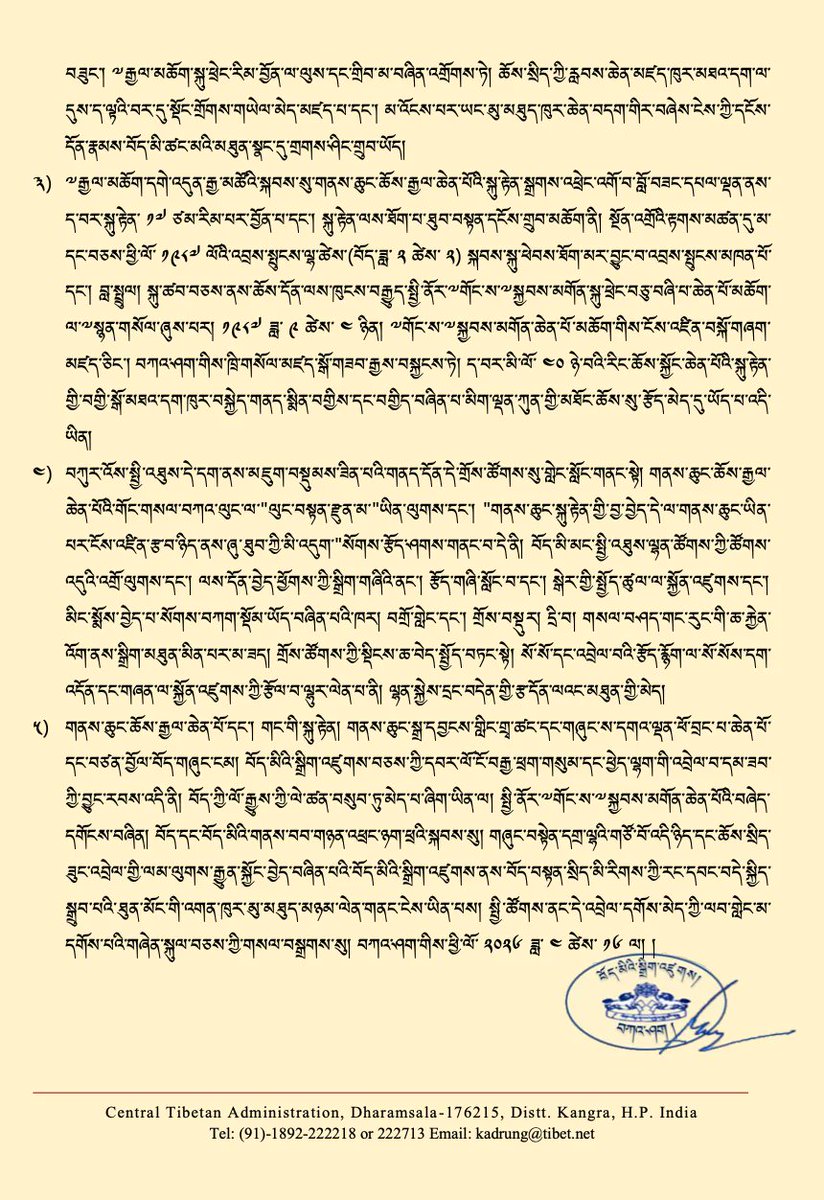 བཟུང་། ༧རྒྱལ་མཆོག་སྐུ་ཕྲེང་རིམ་བྱོན་ལ་ལུས་དང་གྲིབ་མ་བཞིན་འགྲོགས་ཏེ། ཆོས་སྲིད་ཀྱི་རླབས་ཆེན་མཛད་ཁུར་མཐའ་དག་ལ་
དུས་ད་ལྟའི་བར་དུ་སྡོང་གྲོགས་གཡེལ་མེད་མཛད་པ་དང་། མ་འོངས་པར་ཡང་མུ་མཐུད་ཁུར་ཆེན་བདག་གིར་བཞེས་ངེས་ཀྱི་དངོས་
དོན་རྣམས་བོད་མི་ཚང་མའི་མཐུན་སྣང་དུ་གྲགས་ཤིང་གྲུབ་ཡོད།
༣) ༧རྒྱལ་མཆོག་དགེ་འདུན་རྒྱ་མཚོའི་སྐབས་སུ་གནས་ཆུང་ཆོས་རྒྱལ་ཆེན་པོའི་སྐུ་རྟེན་སྒྲགས་འཕྲེང་འགོ་བ་བློ་བཟང་དཔལ་ལྡན་ནས་
ད་བར་སྐུ་རྟེན་ ༡༧ ཙམ་རིམ་པར་བྱོན་པ་དང་། སྐུ་རྟེན་ལས་ཐོག་པ་ཐུབ་བསྟན་དངོས་གྲུབ་མཆོག་ནི། སྔོན་འགྲོའི་རྟགས་མཚན་དུ་མ་
དང་བཅས་ཕྱི་ལོ་ ༡༩༨༧ ལོའི་འབྲས་སྤུངས་ལྷ་ཚེས་(བོད་ཟླ་ ༢ ཚེས་ ༢) སྐབས་སྐུ་ཕེབས་ཐོག་མར་བྱུང་བ་འབྲས་སྤུངས་མཁན་པོ་
དང་། བླ་སྤྲུལ། སྐུ་ཚབ་བཅས་ནས་ཆོས་དོན་ལས་ཁུངས་བརྒྱུད་སྤྱི་ནོར་༧གོང་ས་༧སྐྱབས་མགོན་སྐུ་ཕྲེང་བཅུ་བཞི་པ་ཆེན་པོ་མཆོག་
ལ་༧སྙན་གསོལ་ཞུས་པར། ༡༩༨༧ ཟླ་ ༩ ཚེས་ ༤ ཉིན། ༧གོང་ས་༧སྐྱབས་མགོན་ཆེན་པོ་མཆོག་གིས་ངོས་འཛིན་བསྐོ་གཞག་
མཛད་ཅིང་། བཀའ་ཤག་གིས་ཁྲི་གསོལ་མཛད་སྒོ་གཟབ་རྒྱས་བསྐྱངས་ཏེ། ད་བར་མི་ལོ་ ༤༠ ཉེ་བའི་རིང་ཆོས་སྐྱོང་ཆེན་པོའི་སྐུ་རྟེན་
གྱི་བགྱི་སྒོ་མཐའ་དག་ཁུར་བསྐྱེད་གནད་སྨིན་བགྱིས་དང་བགྱིད་བཞིན་པ་མིག་ལྡན་ཀུན་གྱི་མཐོང་ཆོས་སུ་རྩོད་མེད་དུ་ཡོད་པ་འདི་
ཡིན།
༤) བཀུར་འོས་སྤྱི་འཐུས་དེ་དག་ནས་མཇུག་བསྡུམས་ཟིན་པའི་གནད་དོན་དེ་གྲོས་ཚོགས་སུ་གླེང་སློང་གནང་སྟེ། གནས་ཆུང་ཆོས་རྒྱལ་
ཆེན་པོའི་གོང་གསལ་བཀའ་ལུང་ལ་"ལུང་བསྟན་རྫུན་མ་"ཡིན་ལུགས་དང་། "གནས་ཆུང་སྐུ་རྟེན་གྱི་བྱ་བྱེད་དེ་ལ་གནས་ཆུང་ཡིན་
པར་ངོས་འཛིན་རྩ་བ་ཉིད་ནས་ཞུ་ཐུབ་ཀྱི་མི་འདུག་"སོགས་རྩོད་ཤགས་གནང་བ་དེ་ནི། བོད་མི་མང་སྤྱི་འཐུས་ལྷན་ཚོགས་ཀྱི་ཚོགས་
འདུའི་འགྲོ་ལུགས་དང་། ལས་དོན་བྱེད་ཕྱོགས་ཀྱི་སྒྲིག་གཞིའི་ནང་། རྩོད་གཞི་སློང་བ་དང་། སྒེར་གྱི་སྤྱོད་ཚུལ་ལ་སྐྱོན་འཛུགས་དང་།
མིང་སྨོས་བྱེད་པ་སོགས་བཀག་སྡོམ་ཡོད་བཞིན་པའི་ཁར། བགྲོ་གླེང་དང་། གྲོས་བསྡུར། དྲི་བ། གསལ་བཤད་གང་རུང་གི་ཆ་རྐྱེན་
འོག་ནས་སྒྲིག་མཐུན་མིན་པར་མ་ཟད། གྲོས་ཚོགས་ཀྱི་སྡིངས་ཆ་བེད་སྤྱོད་བཏང་སྟེ། སོ་སོ་དང་འབྲེལ་བའི་རྩོད་རྙོག་ལ་སོ་སོས་དག་
འདོན་དང་གཞན་ལ་སྐྱོན་འཛུགས་ཀྱི་རྩོལ་བ་ལྷུར་ལེན་པ་ནི། ལྷན་སྐྱེས་དྲང་བདེན་གྱི་རྩ་དོན་ལའང་མཐུན་གྱི་མེད།
༥) གནས་ཆུང་ཆོས་རྒྱལ་ཆེན་པོ་དང་། གང་གི་སྐུ་རྟེན། གནས་ཆུང་སྒྲ་དབྱངས་གླིང་གྲྭ་ཚང་དང་གཞུང་ས་དགའ་ལྡན་ཕོ་བྲང་པ་ཆེན་པོ་
དང་བཙན་བྱོལ་བོད་གཞུང་ངམ། བོད་མིའི་སྒྲིག་འཛུགས་བཅས་ཀྱི་དབར་ལོ་ངོ་བརྒྱ་ཕྲག་གསུམ་དང་ཕྱེད་ལྷག་གི་འབྲེལ་བ་དམ་ཟབ་
ཀྱི་བྱུང་རབས་འདི་ནི། བོད་ཀྱི་ལོ་རྒྱུས་ཀྱི་ལེ་ཚན་བསུབ་ཏུ་མེད་པ་ཞིག་ཡིན་ལ། སྤྱི་ནོར་༧གོང་ས་༧སྐྱབས་མགོན་ཆེན་པོའི་བཞེད་
དགོངས་བཞིན། བོད་དང་བོད་མིའི་གནས་བབ་གཉན་འཕྲང་ཉག་ཕྲའི་སྐབས་སུ། གཞུང་བསྟེན་དགྲ་ལྷའི་གཙོ་བོ་འདི་ཉིད་དང་ཆོས་སྲིད་
ཟུང་འབྲེལ་གྱི་ལམ་ལུགས་རྒྱུན་སྐྱོང་བྱེད་བཞིན་པའི་བོད་མིའི་སྒྲིག་འཛུགས་ནས་བོད་བསྟན་སྲིད་མི་རིགས་ཀྱི་རང་དབང་བདེ་སྐྱིད་
སྒྲུབ་པའི་ཐུན་མོང་གི་འགན་ཁུར་མུ་མཐུད་མཉམ་ལེན་གནང་ངེས་ཡིན་པས། སྤྱི་ཚོགས་ནང་དེ་འབྲེལ་དགོས་མེད་ཀྱི་ལབ་གླེང་མ་
དགོས་པའི་གཞེན་སྐུལ་བཅས་ཀྱི་གསལ་བསྒྲགས་སུ། བཀའ་ཤག་གིས་ཕྱི་ལོ་ ༢༠༢༦ ཟླ་ ༤ ཚེས་ ༡༦ ལ། །
བོད་མིའི་སྒྲིག་འཛུགས།
བཀའ་ཤག།
Central Tibetan Administration, Dharamsala-176215, Distt. Kangra, H.P. India
Tel: (91)-1892-222218 or 222713 Email: kadrung@tibet.net